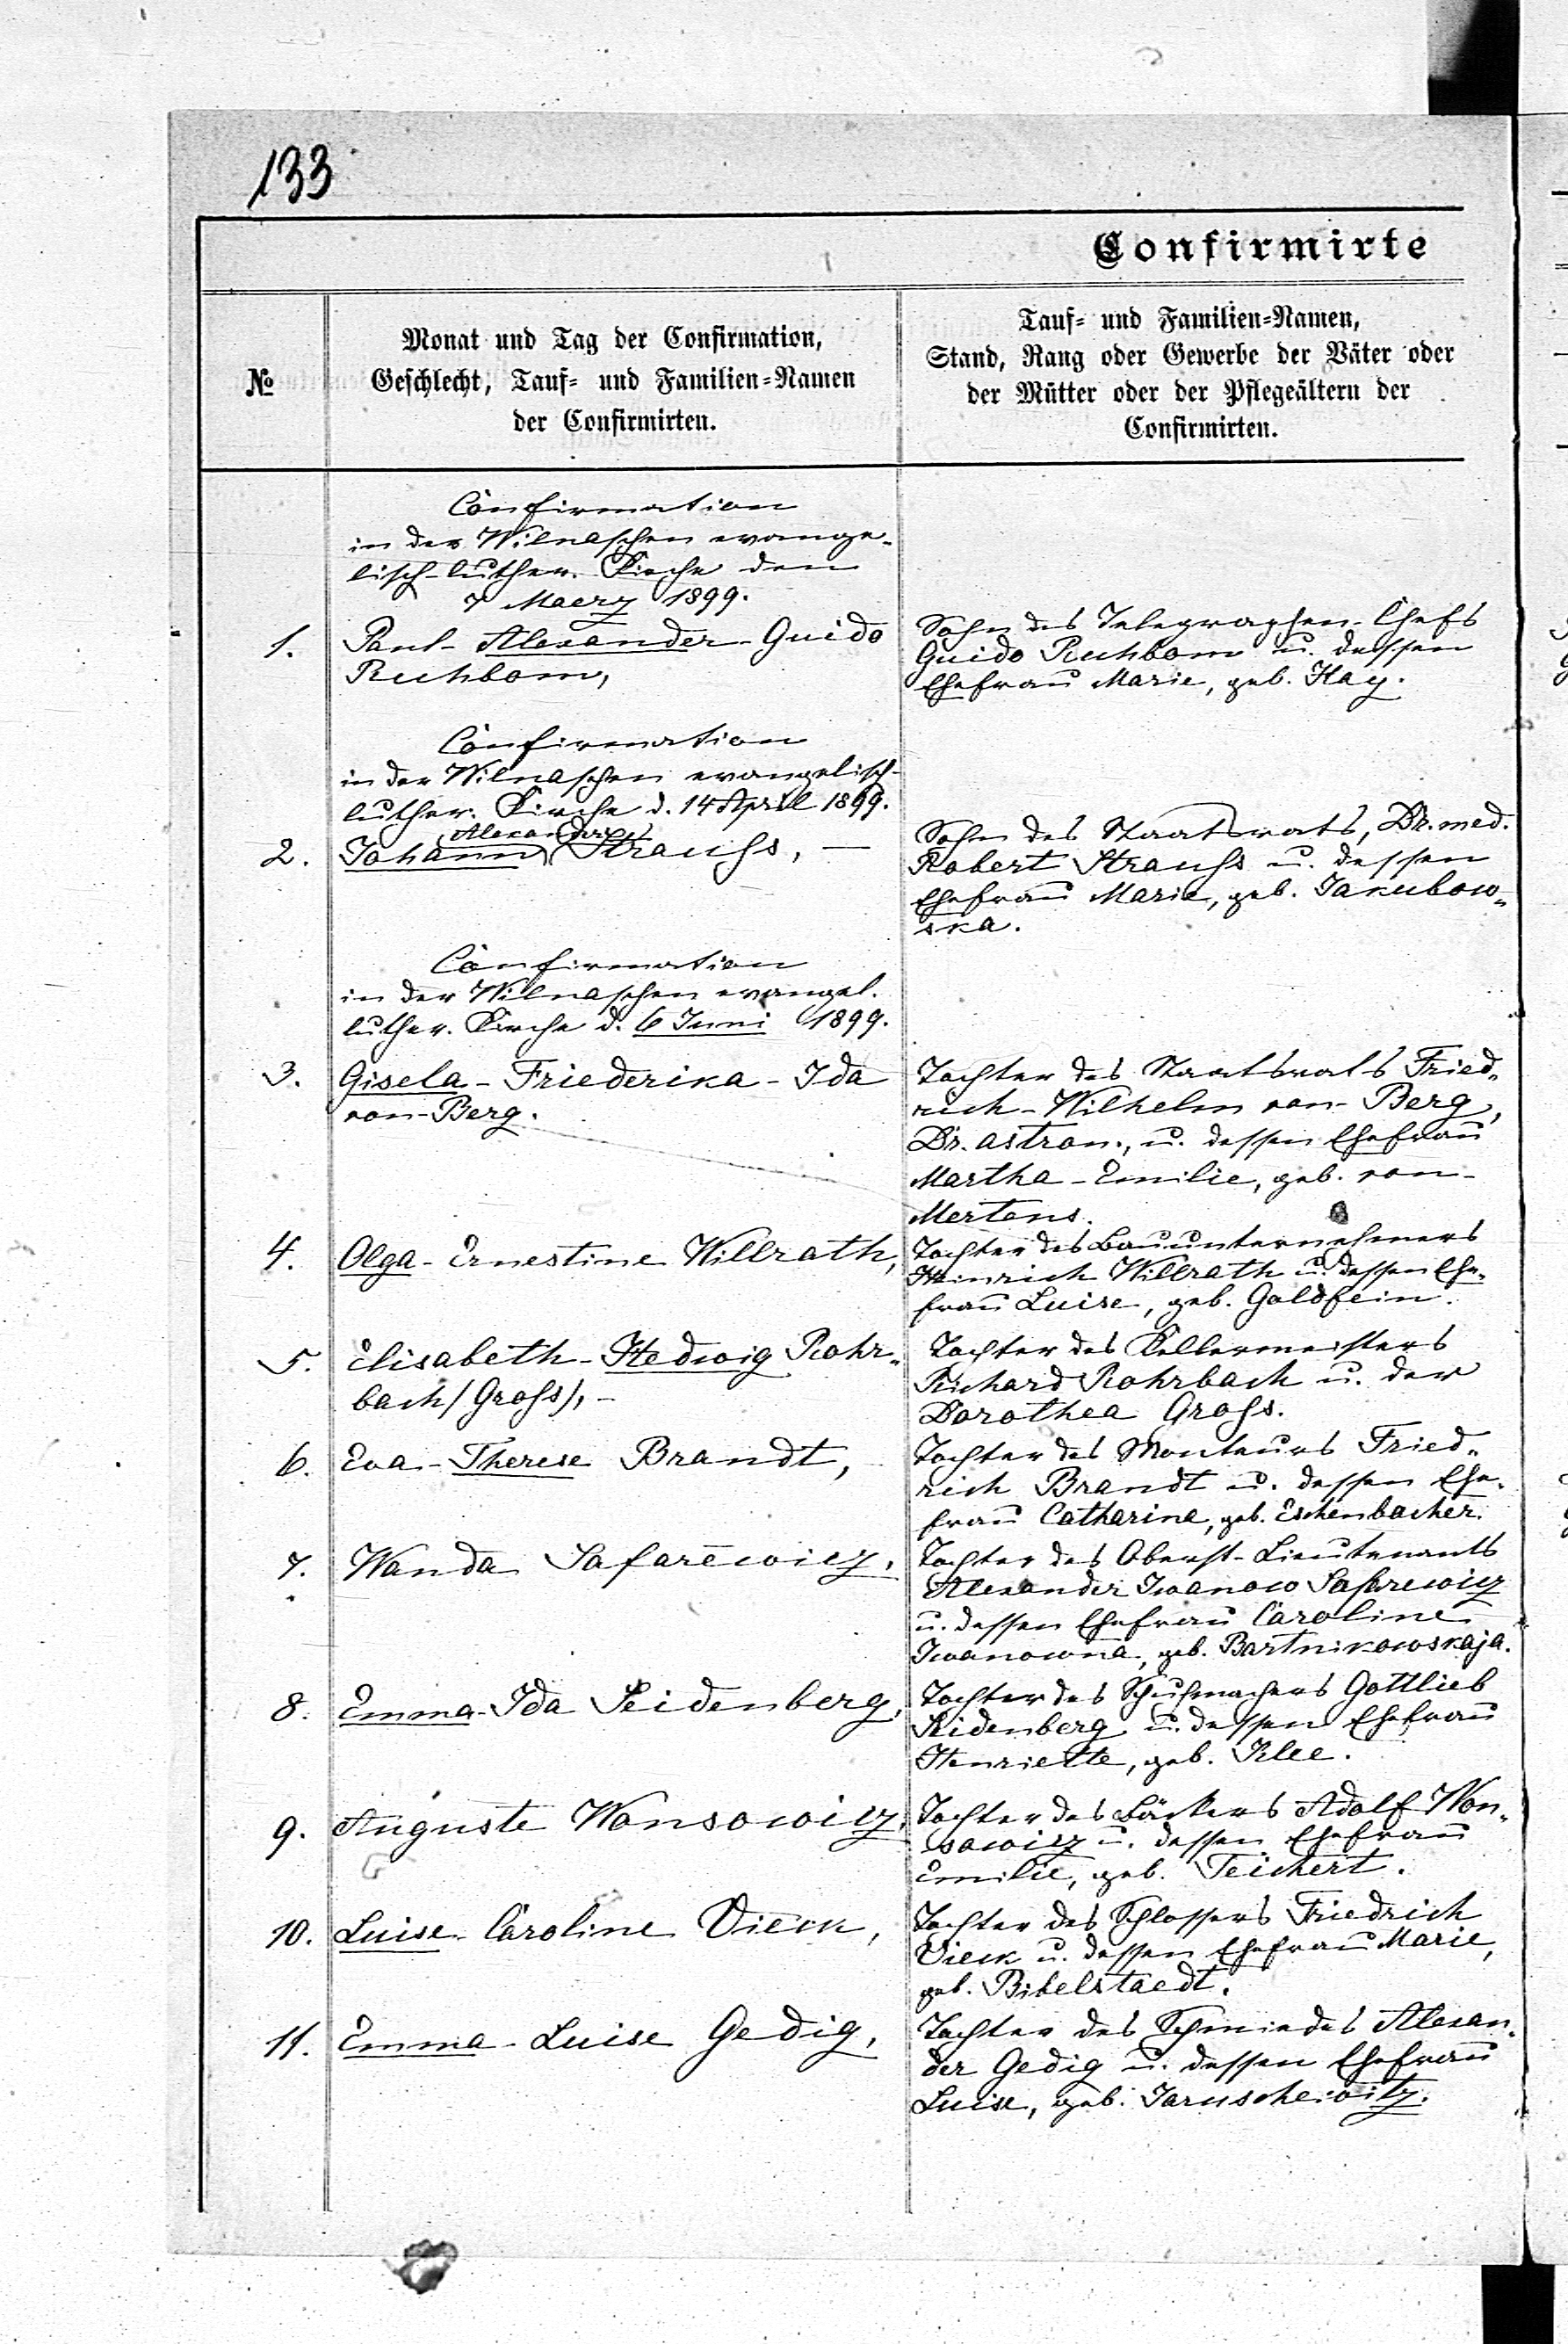 133
Confirmirte
№
Monat und Tag der Confirmation,
Geschlecht, Tauf- und Familien-Namen
der Confirmirten.
Tauf- und Familien-Namen,
Stand, Rang oder Gewerbe der Väter oder
der Mütter oder der Pflegeältern der
Confirmirten.
Confirmation
in der Wilnaschen evange-
lisch-luther. Kirche den
7 Maerz 1899.
1.
Paul-Alexander-Guido
Ruhbom,
Sohn des Telegraphen-Chefs
Guido Ruhbom u. dessen
Ehefrau Marie, geb. Hay.
Confirmation
in der Wilnaschen evangelisch-
luther. Kirche d. 14 April 1899.
2.
Alexander
Johann Strauss, —
Sohn des Staatsrats, Dr. med.
Robert Strauss u. dessen
Ehefrau Marie, geb. Jakubow-
ska.
Confirmation
in der Wilnaschen evangel.
luther. Kirche d. 6 Juni 1899.
3.
Gisela-Friederika-Ida
von-Berg.
Tochter des Staatsrats Fried-
rich-Wilhelm von-Berg,
Dr. astron., u. dessen Ehefrau
Martha-Emilie, geb. von-
Mertens.
4.
Olga-Ernestine Willrath,
Tochter des Bauunternehmers
Heinrich Willrath u. dessen Ehe-
frau Luise, geb. Goldfein.
5.
Elisabeth-Hedwig Rohr-
bach/Gross/, —
Tochter des Kellermeisters
Richard Rohrbach u. der
Dorothea Gross.
6.
Eva-Therese Brandt,
Tochter des Monteurs Fried-
rich Brandt u. dessen Ehe-
frau Catharina, geb. Eschenbacher.
7.
Wanda Safarewicz,
Tochter des Oberst-Lieutenants
Alexander Iwanow Safarewicz
u. dessen Ehefrau Caroline
Iwanowna, geb. Bartnikowskaja.
8.
Emma-Ida Seidenberg,
Tochter des Schuhmachers Gottlieb
Seidenberg u. dessen Ehefrau
Henriette, geb. Klee.
9.
Auguste Wonsowicz,
Tochter des Bäckers Adolf Won-
sowicz u. dessen Ehefrau
Emilie, geb. Teichert.
10.
Luise-Caroline Vieck,
Tochter des Schlossers Friedrich
Vieck u. dessen Ehefrau Marie,
geb. Bibelstaedt.
11.
Emma-Luise Gedig,
Tochter des Schmiedes Alexan-
der Gedig u. dessen Ehefrau
Luise, geb. Jaruschewitz.